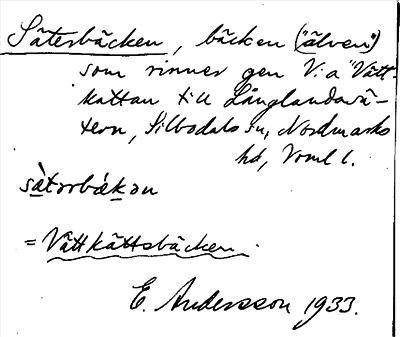 Säterbäcken, bäcken ("älven")
som rinner gen V:a "Vätt-
kattan till Långlandsvä-
tern, Silbodals sn, Nordmarks
hd, Vrml l.
sàtərbǽkən
= Vättkättsbäcken.
E. Andersson 1933.